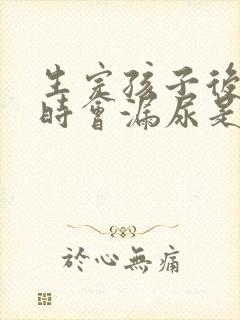 生完孩子後
時會漏尿是
於心無痛